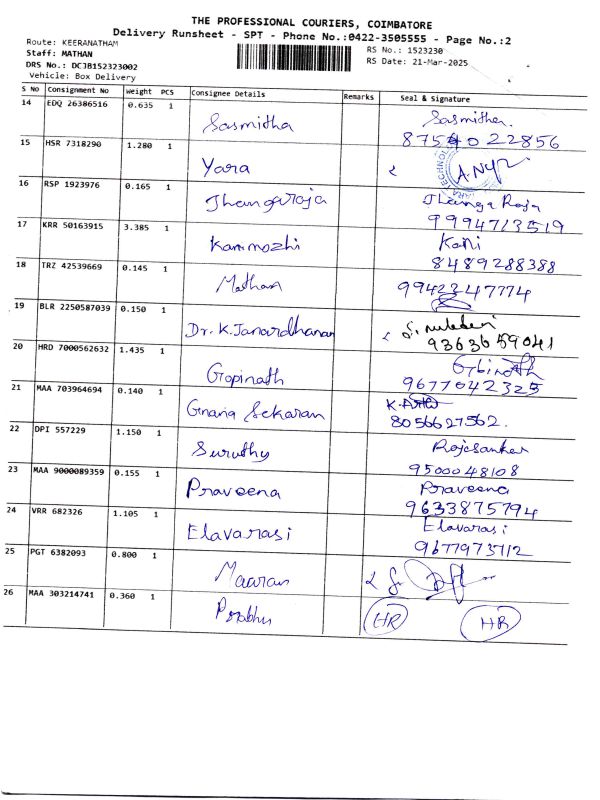 THE PROFESSIONAL COURIERS, COIMBATORE
Delivery Runsheet - SPT - Phone No.:0422-3505555 - Page No.:2
Route: KEERANATHAM
RS No.: 1523230
Staff: MATHAN
RS Date: 21-Mar-2025
DRS No.: DCJB152323002
Vehicle: Box Delivery
S No Consignment No Weight PCS Consignee Details Remarks Seal & Signature
14 EDQ 26386516 0.635 1 Sasmitha Sasmitha
8754022856
15 HSR 7318290 1.280 1 Yara
16 RSP 1923976 0.165 1 Thangaraja Thanga Raja
9994713519
17 KRR 50163915 3.385 1 Kanimozhi Kani
8489288388
18 TRZ 42539669 0.145 1 Mathan 9942347774
19 BLR 2250587039 0.150 1 Dr. K. Janardhanan
9363659041
20 HRD 7000562632 1.435 1 Gopinath Gobinath
9677042325
21 MAA 703964694 0.140 1 Gnana Sekaran
8056627562.
22 DPI 557229 1.150 1 Suruthy Rajasankar
9500048108
23 MAA 9000089359 0.155 1 Praveena Praveena
9633875794
24 VRR 682326 1.105 1 Elavarasi Elavarasi
9677973112
25 PGT 6382093 0.800 1 Maaran
26 MAA 303214741 0.360 1 Prabhu HR HR